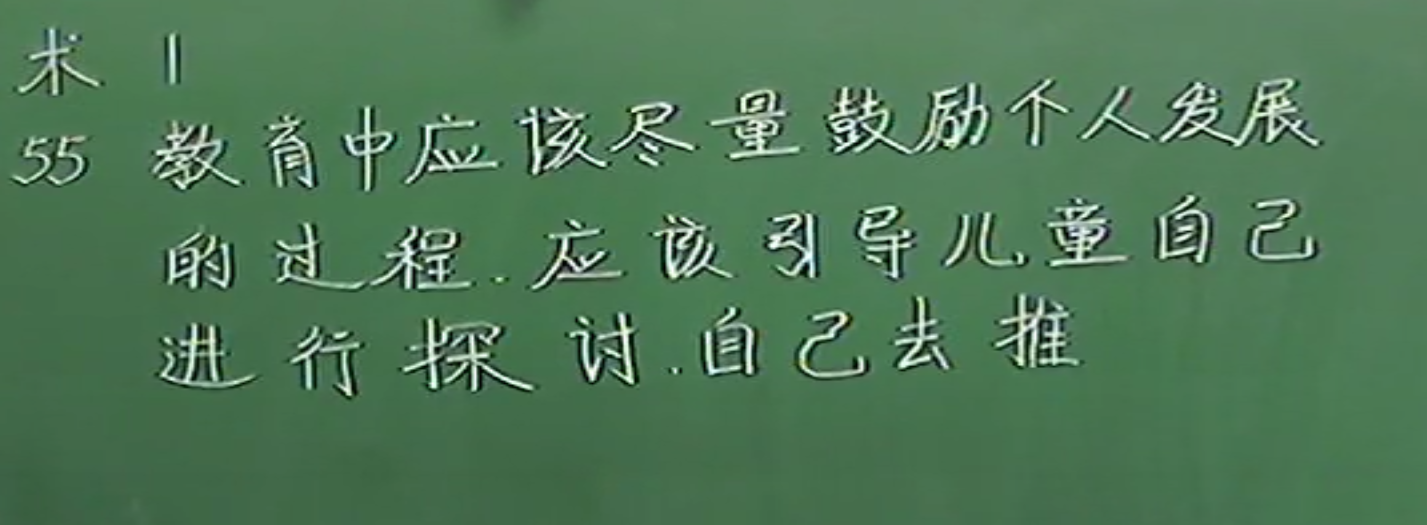 术 1
55 教育中应该尽量鼓励个人发展
的过程.应该引导儿童自己
进行探讨.自己去推